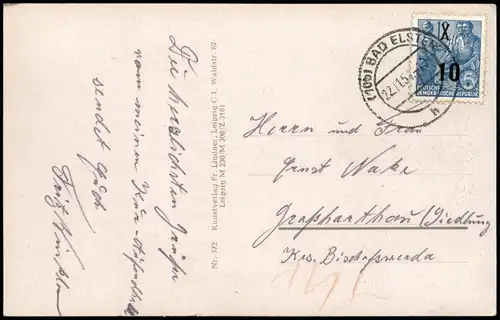 Die herzlichsten Grüße
von meinem Kur-Aufenthalt
sendet Euch
Fritz
Nr. 572 Kunstverlag Fr. Lindner, Leipzig C 1, Waldstr. 67
Leipzig M 220/M 306/Z 3161
(10b) BAD ELSTER
22.11.54
h
X
10
DEUTSCHE
DEMOKRATISCHE REPUBLIK
Herrn und Frau
Ernst Nake
Großharthau (Siedlung
Krs. Bischofswerda